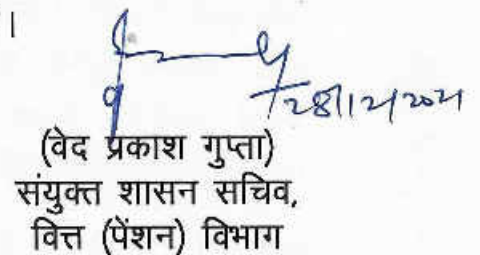 ।
28/12/2021
(वेद प्रकाश गुप्ता)
संयुक्त शासन सचिव,
वित्त (पेंशन) विभाग